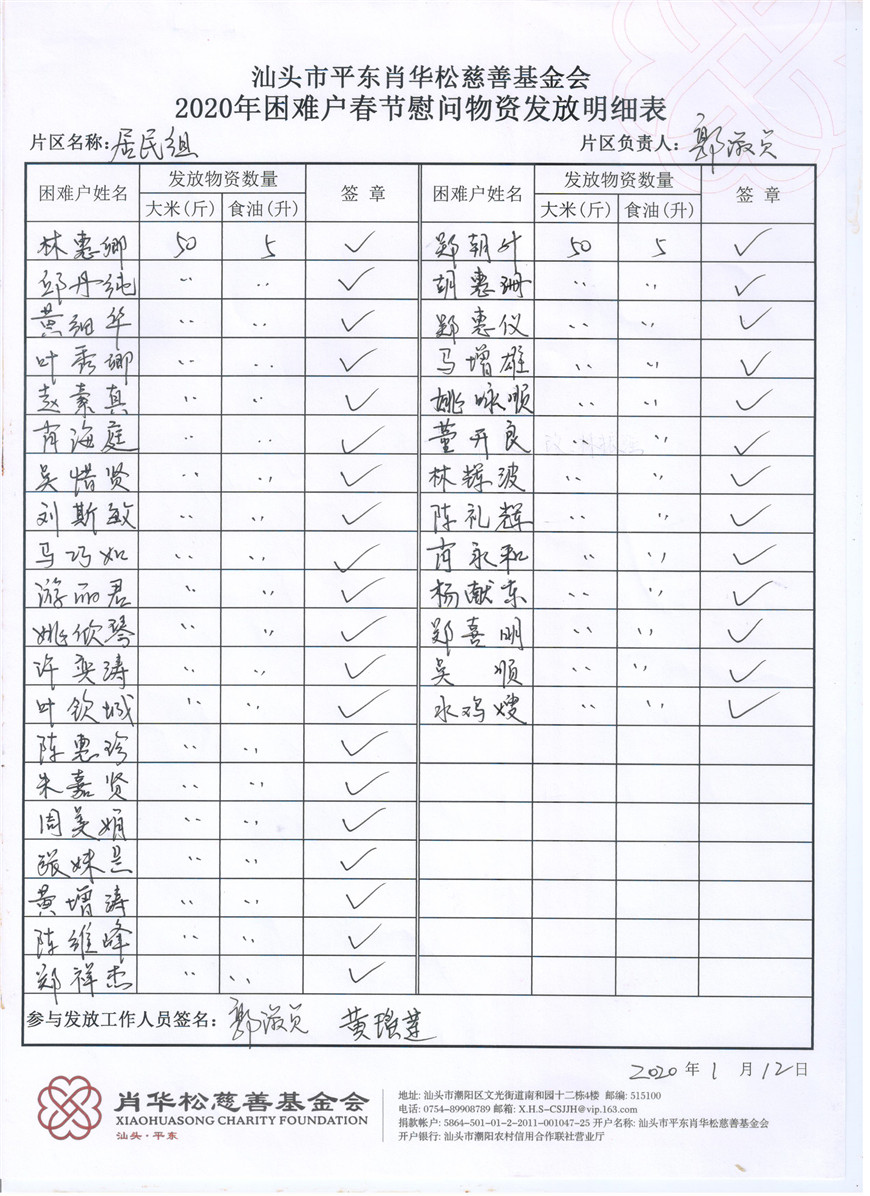 汕头市平东肖华松慈善基金会
2020年困难户春节慰问物资发放明细表
片区名称:居民组 片区负责人:郭淑贞
困难户姓名 发放物资数量 签 章 困难户姓名 发放物资数量 签 章
大米(斤) 食油(升) 大米(斤) 食油(升)
林惠卿 50 5 ✓ 郑朝叶 50 5 ✓
邱丹纯 〃 〃 ✓ 胡惠珊 〃 〃 ✓
黄细华 〃 〃 ✓ 郑惠仪 〃 〃 ✓
叶秀卿 〃 〃 ✓ 马增雄 〃 〃 ✓
赵素真 〃 〃 ✓ 姚咏顺 〃 〃 ✓
肖海庭 〃 〃 ✓ 董开良 〃 〃 ✓
吴惜贤 〃 〃 ✓ 林辉波 〃 〃 ✓
刘斯敏 〃 〃 ✓ 陈礼辉 〃 〃 ✓
马巧如 〃 〃 ✓ 肖永和 〃 〃 ✓
游丽君 〃 〃 ✓ 杨献东 〃 〃 ✓
姚欣琴 〃 〃 ✓ 郑喜明 〃 〃 ✓
许奕涛 〃 〃 ✓ 吴 顺 〃 〃 ✓
叶钦城 〃 〃 ✓ 水鸡嫂 〃 〃 ✓
陈惠珍 〃 〃 ✓
朱嘉贤 〃 〃 ✓
周美娟 〃 〃 ✓
张妹 〃 〃 ✓
黄增涛 〃 〃 ✓
陈维峰 〃 〃 ✓
郑祥杰 〃 〃 ✓
参与发放工作人员签名: 郭淑贞 黄瑞莲
2020年1月12日
肖华松慈善基金会
XIAOHUASONG CHARITY FOUNDATION
汕头·平东
地址: 汕头市潮阳区文光街道南和园十二栋4楼 邮编: 515100
电话: 0754-89908789 邮箱: X.H.S-CSJJH@vip.163.com
捐款帐户: 5864-501-01-2-2011-001047-25 开户名称: 汕头市平东肖华松慈善基金会
开户银行: 汕头市潮阳农村信用合作联社营业厅